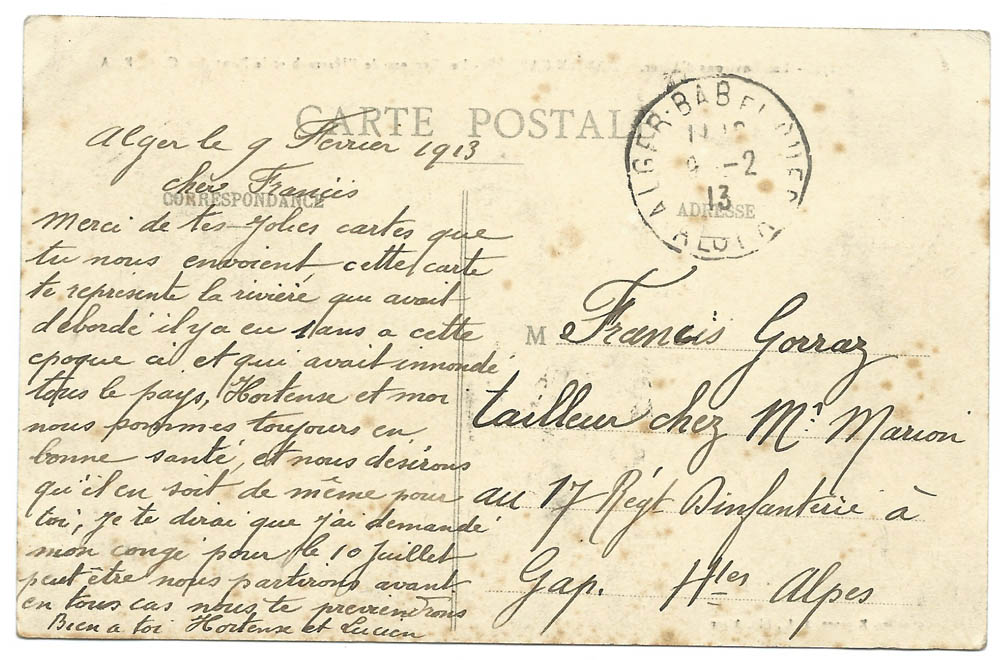 CARTE POSTALE
ALGER-BAB EL OUED
9 -2
13
ALGER
CORRESPONDANCE
ADRESSE
Alger le 9 Fevrier 1913
cher Francis
Merci de tes Jolies cartes que
tu nous envoient cette carte
te represente la rivière qui avait
debordé il y a eu 1 ans a cette
epoque ci et qui avait innondé
tous le pays, Hortense et moi
nous sommes toujours en
bonne santé, et nous désirons
qu'il en soit de même pour
toi, Je te dirai que j'ai demandé
mon congé pour le 10 Juillet
peut être nous partirons avant
en tous cas nous te previendrons
Bien a toi Hortense et Lucien
M Francis Gorraz
tailleur chez Mr Marion
au 17 Régt Dinfanterie à
Gap. Htes Alpes